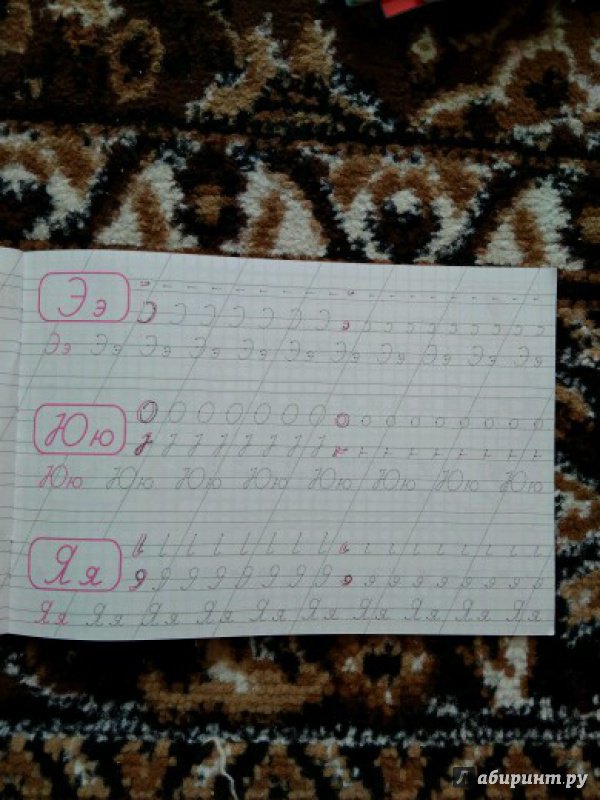 Э э
Ээ Ээ Ээ Ээ Ээ Ээ Ээ Ээ Ээ Ээ Ээ
Ю ю
Юю Юю Юю Юю Юю Юю Юю Юю
Я я
Яя Яя Яя Яя Яя Яя Яя Яя Яя Яя
абиринт.ру